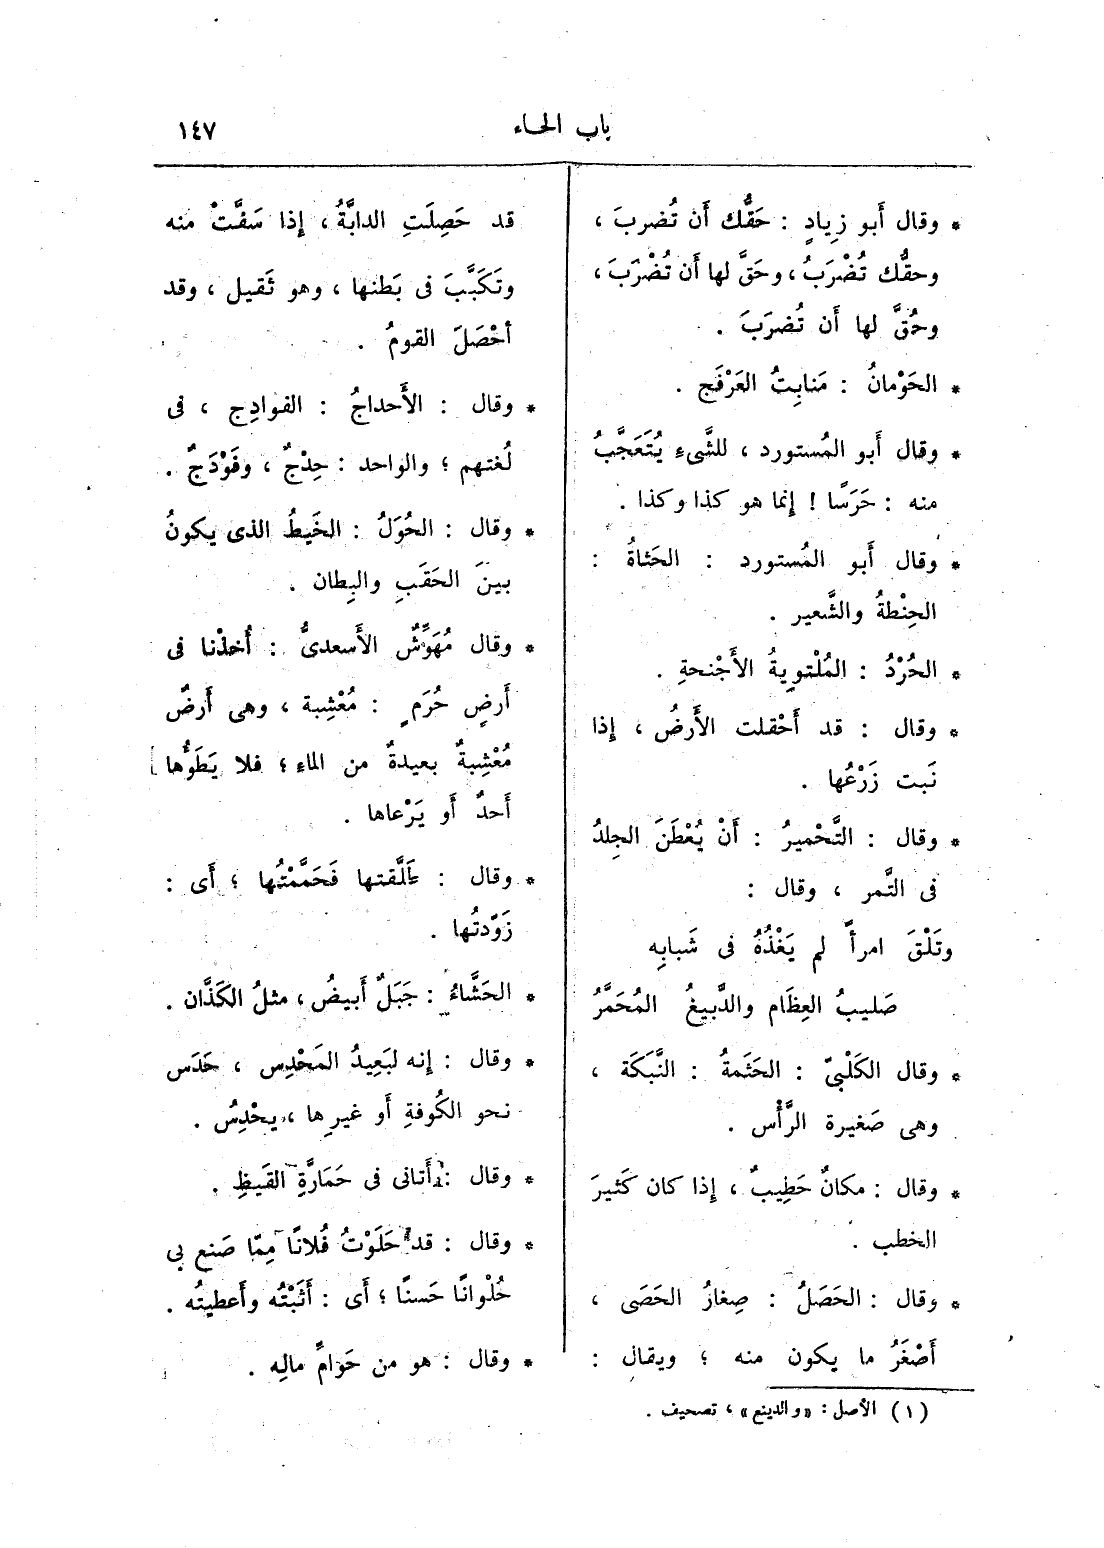 باب الحاء
١٤٧
* وقال أَبو زِيادٍ : حَقُّك أَن تُضربَ ،
وحقُّك تُضْرَبُ ، وحَقَّ لها أَن تُضْرَبَ ،
وحُقَّ لها أَن تُضرَبَ .
* الحَوْمانُ : مَنابِتُ العَرْفَج .
* وقال أَبو المُستورد ، للشَّىءِ يُتَعَجَّبُ
منه : حَرَسًا ! إِنما هو كذا وكذا .
* وقال أَبو المُستورد : الحَثاةُ :
الحِنْطةُ والشَّعير .
* الحُرْدُ : المُلْتوِيةُ الأَجْنحةِ .
* وقال : قد أَحْقلت الأَرضُ ، إِذا
نَبت زَرْعُها .
* وقال : التَّحْميرُ : أَنْ يُعْطَنَ الجِلدُ
فى التَّمر ، وقال :
وتَلْقَ امرأً لم يَغْذُهُ فى شَبابِه
صَليبُ العِظَام والدَّبيغُ المُحَمَّرُ
* وقال الكَلْبىّ : الحَثَمةُ : النَّبَكَة ،
وهى صَغيرة الرَّأْس .
* وقال : مكانٌ حَطِيبٌ ، إِذا كان كَثيرَ
الحطب .
* وقال : الحَصَلُ : صِغارُ الحَصَى ،
أَصْغَرُ ما يكون منه ؛ ويقال :
قد حَصِلَتِ الدابَّةُ ، إِذا سَفَّتْ منه
وتَكَبَّبَ فى بَطنها ، وهو ثَقيل ، وقد
أحْصَلَ القومُ .
* وقال : الأَحداجُ : الفوادِج ، فى
لُغتهم ؛ والواحد : حِدْجٌ ، وفَوْدَجٌ .
* وقال : الحُوَلُ : الخَيطُ الذى يكونُ
بينَ الحَقَبِ والبِطان .
* وقال مُهَوِّشٌ الأَسعدىُّ : أُخذْنا فى
أَرضٍ حُرَمٍ : مُعْشِبة ، وهى أَرضٌ
مُعْشِبةٌ بعيدةٌ من الماء ؛ فلا يَطَوُّها
أَحدٌ أَو يَرْعاها .
* وقال : طَلَّقتها فَحَمَّمْتُها ؛ أَى :
زَوّدتُها .
* الحَشَّاءُ : جَبَلٌ أَبيضُ ، مثلُ الكَذَّان .
* وقال : إِنه لبَعِيدُ المَحْدِس ، حَدَس
نحو الكُوفةِ أَو غيرِها ، يحْدِسُ .
* وقال : أَتانى فى حَمَارَّةِ القَيظِ .
* وقال : قد حَلَوْتُ فُلانًا مِمّا صَنع بى
حُلْوانًا حَسنًا ؛ أَى : أَثَبْتُه وأَعطيتُه .
* وقال : هو من حَوامِّ مالِه .
(١) الأصل : « والدينع » ، تصحيف .